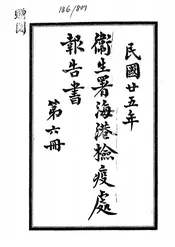 136/809
民國廿五年
衛生署海港檢疫處
報告書
第六冊